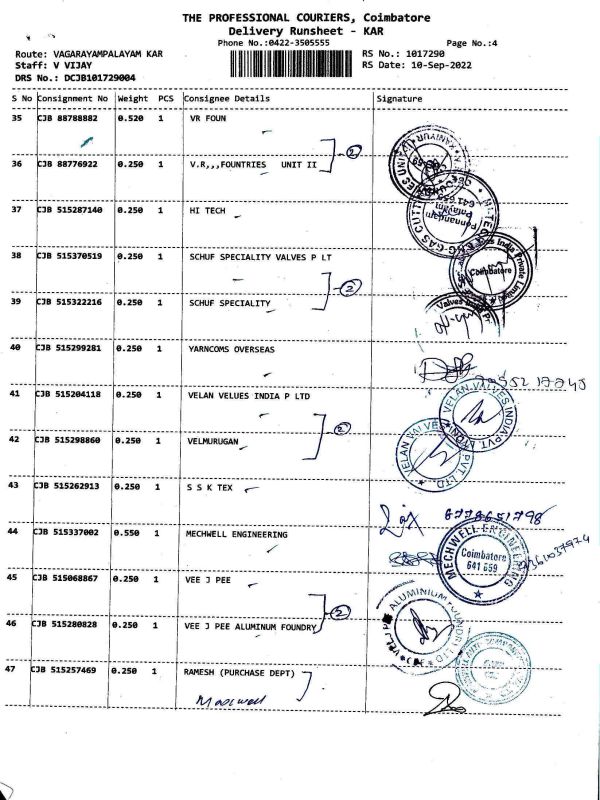 THE PROFESSIONAL COURIERS, Coimbatore
Delivery Runsheet - KAR
Phone No.:0422-3505555 Page No.:4
Route: VAGARAYAMPALAYAM KAR RS No.: 1017290
Staff: V VIJAY RS Date: 10-Sep-2022
DRS No.: DCJB101729004
S No Consignment No Weight PCS Consignee Details Signature
35 CJB 88788882 0.520 1 VR FOUN
2
36 CJB 88776922 0.250 1 V.R,,,FOUNTRIES UNIT II
37 CJB 515287140 0.250 1 HI TECH
Ponnandam
Palayam
641 659
38 CJB 515370519 0.250 1 SCHUF SPECIALITY VALVES P LT
Coimbatore
2
39 CJB 515322216 0.250 1 SCHUF SPECIALITY
40 CJB 515299281 0.250 1 YARNCOMS OVERSEAS
41 CJB 515204118 0.250 1 VELAN VELUES INDIA P LTD
VELAN VALVES INDIA PVT. LTD.
2
42 CJB 515298860 0.250 1 VELMURUGAN
43 CJB 515262913 0.250 1 S S K TEX
44 CJB 515337002 0.550 1 MECHWELL ENGINEERING
MECHWELL ENGINEERING
Coimbatore
641 659
45 CJB 515068867 0.250 1 VEE J PEE
2
46 CJB 515280828 0.250 1 VEE J PEE ALUMINUM FOUNDRY
47 CJB 515257469 0.250 1 RAMESH (PURCHASE DEPT)